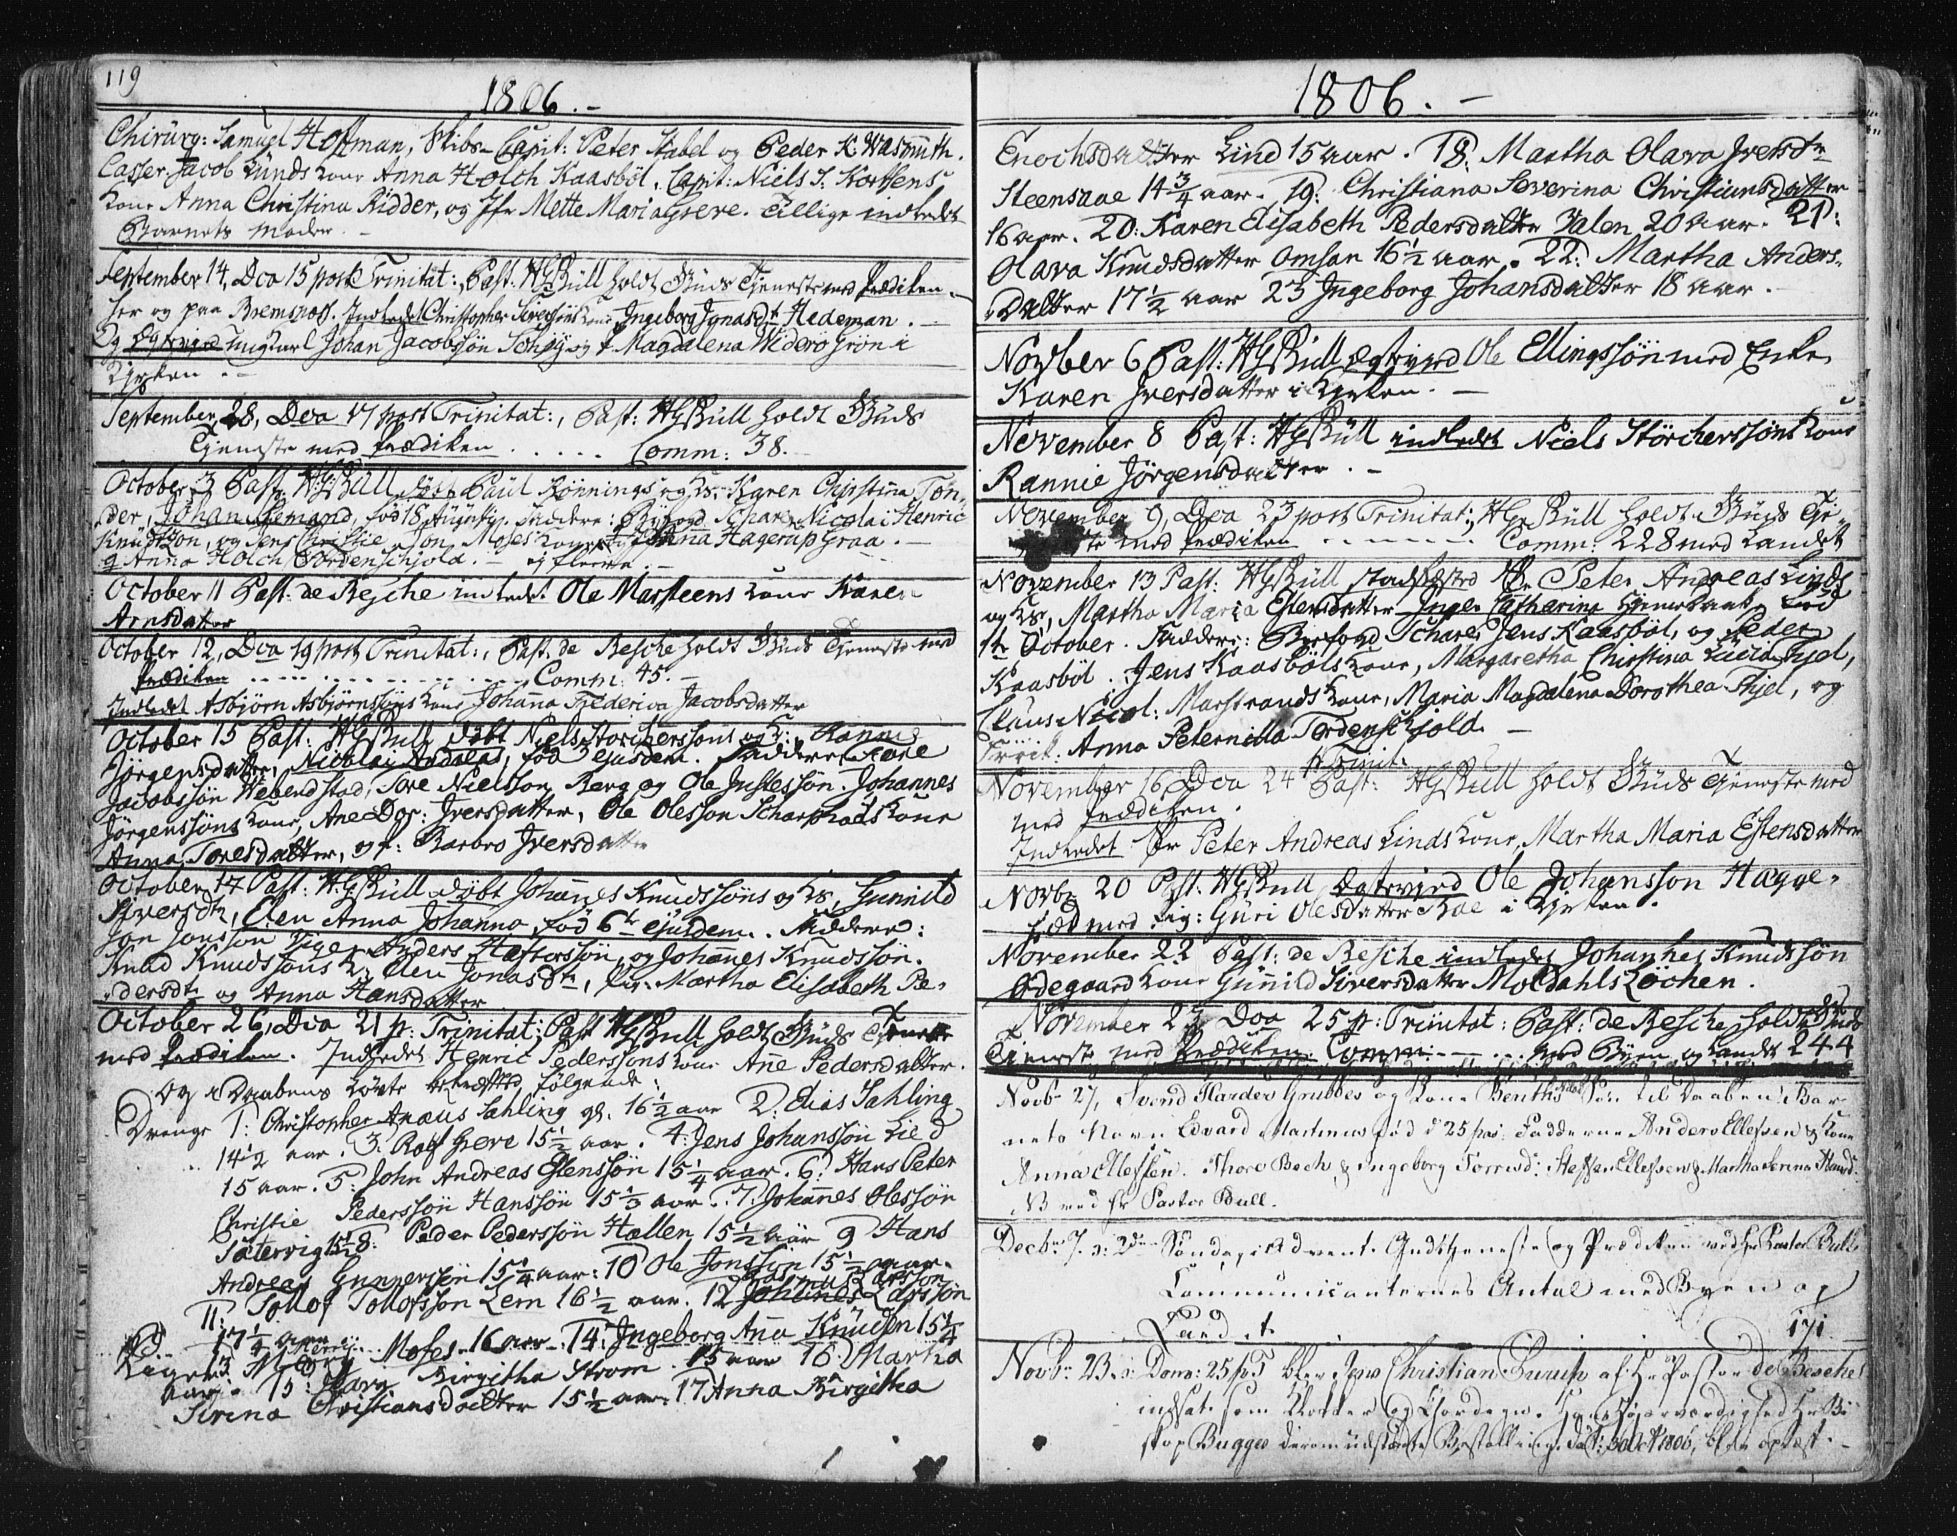 119
1806.-
Chirurg: Samuel Hoffman, Skibs-Capit: Peter Stabel og Peder K: Wasmuth.
Casser: Jacob Lunds kone Anna Holch Kaasböl, Capit: Niels J. Kortsens
kone Anna Christina Ridder, og Jfr Mette Maria Greve. Tillige indledet
Barnets Moder.
September 14, Dca 15 post Trinitat:, Past: HGBull holdt Guds Tjeneste med Prædiken
her og paa Bremsnæs. Indledet Christopher Sivertsöns kone Ingeborg Jonasdt Hedeman.
Og Ægteviet Ungkarl Johan Jacobssön og P. Magdalena Widerö Grön i
Kirken.
September 28, Dca 17 post Trinitat:, Past: HGBull holdt Guds
Tjeneste med Prædiken ..... Comm: 38.
October 3 Past: HGBull döbt Paul Rönnings og Ks. Karen Christina Ton-
der, Johan, föd 18 Augusti. Faddere: Byfogd Schare, Nicolai Henric
Knudtzon, og Jens Christie, Jon Moses kone, Anna Hagerup Graa.
Anna Holch Tordenschjold. - og fleere. -
October 11 Past: de Besche indledet Ole Marsteens kone Karen
Arnsdatter
October 12, Dca 19 post Trinitat:, Past: de Besche holdt Guds Tjeneste med
Prædiken ........ Comm: 45.
Indledet Asbjørn Asbjørnssöns kone Johanna Frederica Jacobsdatter
October 15 Past: HGBull döbt Niels Storchersöns og K: Rannie
Jörgensdatter, Nicolai Andreas, föd ejusdem. Faddere: Tore
Jacobssön, Tore Nielssön Berg og Ole Justessön. Johannes
Jörgenssöns kone, Ane Dor: Iversdatter, Ole Olesson Scharpnæs kone
Anna Toresdatter, og P: Barbro Iversdatter
October 17 Past: HGBull döbt Johannes Knudssöns og Ks, Gunnild
Siversdtr, Elen Anna Johanna, föd 6te ejusdem. Faddere:
Jon Jonsson Viger, Anders Haftorssön, og Johannes Knudssön.
Knud Knudssöns K: Elen Jonasdtr, Pir. Martha Elisabeth Pe-
dersdtr og Anna Hansdatter
October 26, Dca 21 p: Trinitat: Past HGBull holdt Guds Tjeneste
med Prædiken. Indledet Henric Pederssöns kone Ane Pedersdatter.
Og i Daabens Löfte bekræftet fölgende:
Drenge 1: Christopher Anæus Sahling gl. 16½ aar 2: Elias Sahling
14½ aar. 3: Rolf Greve 15½ aar. 4: Jens Johanssön Lied
15 aar. 5: John Andreas Estenssön 15¼ aar. 6: Hans Peter
Christie Pederssön Hanssön 15⅓ aar. 7: Johannes Olessön
Sætervig 15½ 8: Peder Pederssön Hallen 15½ aar 9 Hans
Andreas Gunnerssön 15¼ aar: 10 Ole Jonssön 15½ aar.
11: Tollof Tollofsson Lem 16½ aar. 12 Johannes Larssön
17¼ aar
Piger 13 Moses 16 aar. 14: Ingeborg Ana Knudsn 15¼
aar. 15: Marg Birgitha Strøm. 15 aar 16: Martha
Serina Christiansdaatter 15½ aar. 17 Anna Birgitha
1806. -
Enochsdatter Lind 15 aar. 18: Martha Olava Iversdtr
Steensaae 14¾ aar. 19: Christiana Severina Christiansdatter
16 aar. 20: Karen Elisabeth Pedersdatter Dalen 20 aar. 21:
Olava Knudsdatter Omsan 16½ aar. 22: Martha Anders-
datter 17½ aar 23 Ingeborg Johansdatter 18 aar.
Novber 6 Past: HGBull Ægteviet Ole Ellingssön med Enke
Karen Iversdatter i Kirken.
November 8 Past: HGBull indledet Niels Störcherssöns kone
Rannie Jörgensdatter.
November 9, Dca 23 post Trinitat:, HGBull holdt Guds Tje-
neste med Prædiken ...... Comm: 228 med Landet
November 13 Past: HGBull stadfæsted Hr Peter Andreas Linds
og Ks, Martha Maria Estensdatter Inger Catharina hjemmedaab, föd
1te October. Faddere: Byefogd Schare, Jens Kaasböl, og Peder
Kaasböl. Jens Kaasböls kone, Margaretha Christina Lucia Thiel,
Claus Nicol: Marstrands kone, Maria Magdalena Dorothea Thiel, og
Fröik: Anna Peternilla Tordenschjold.
November 16, Dca 24 p Trinit. Past: HGBull holdt Guds Tjeneste med
med Prædiken.
Indledet Hr Peter Andreas Linds kone, Martha Maria Estensdatter
Novbr 20 Past: HGBull Ægteviet Ole Johansson Hagge-
med Pig: Guri Olesdatter Boe i Kirken.
November 22 Past: de Besche indledet Johannes Knudssön
Ödegaard kone Gunnild Siversdatter Moldahls Löchen.
November 23 Dca 25 p: Trinitat: Past: de Besche holdt Guds
Tjeneste med Prædiken. Comm: - ... med Byen og Landet 244
Novbr 27, Svend Harder Grubbes og Kone Benths Søn til Daaben: Bar-
nets Navn Edvard Martinus fød d 25 pas: Fadderne Anders Ellefsen & Kone
Anna Ellefsen. Thore Bech & Ingeborg Torrisd: Steffen Ellefsen & Martha Serina
NB ved Hr Pastor Bull.
Decbr 7. o: 2den Søndag i Advent. Gudstjeneste og Prædiken ved Hr Pastor Bull
Communicanternes Antal med Byen og
Landet. 171
Novbr 23. o: Dom: 25 p T blev Jens Christian af Hr Pastor de Besche
indsat som Klokker og Chordegn. Hans Høiærværdighed Hr Bi-
skop Bugges derom udstædte Bestalling, dat: 1806, blev oplæst. -